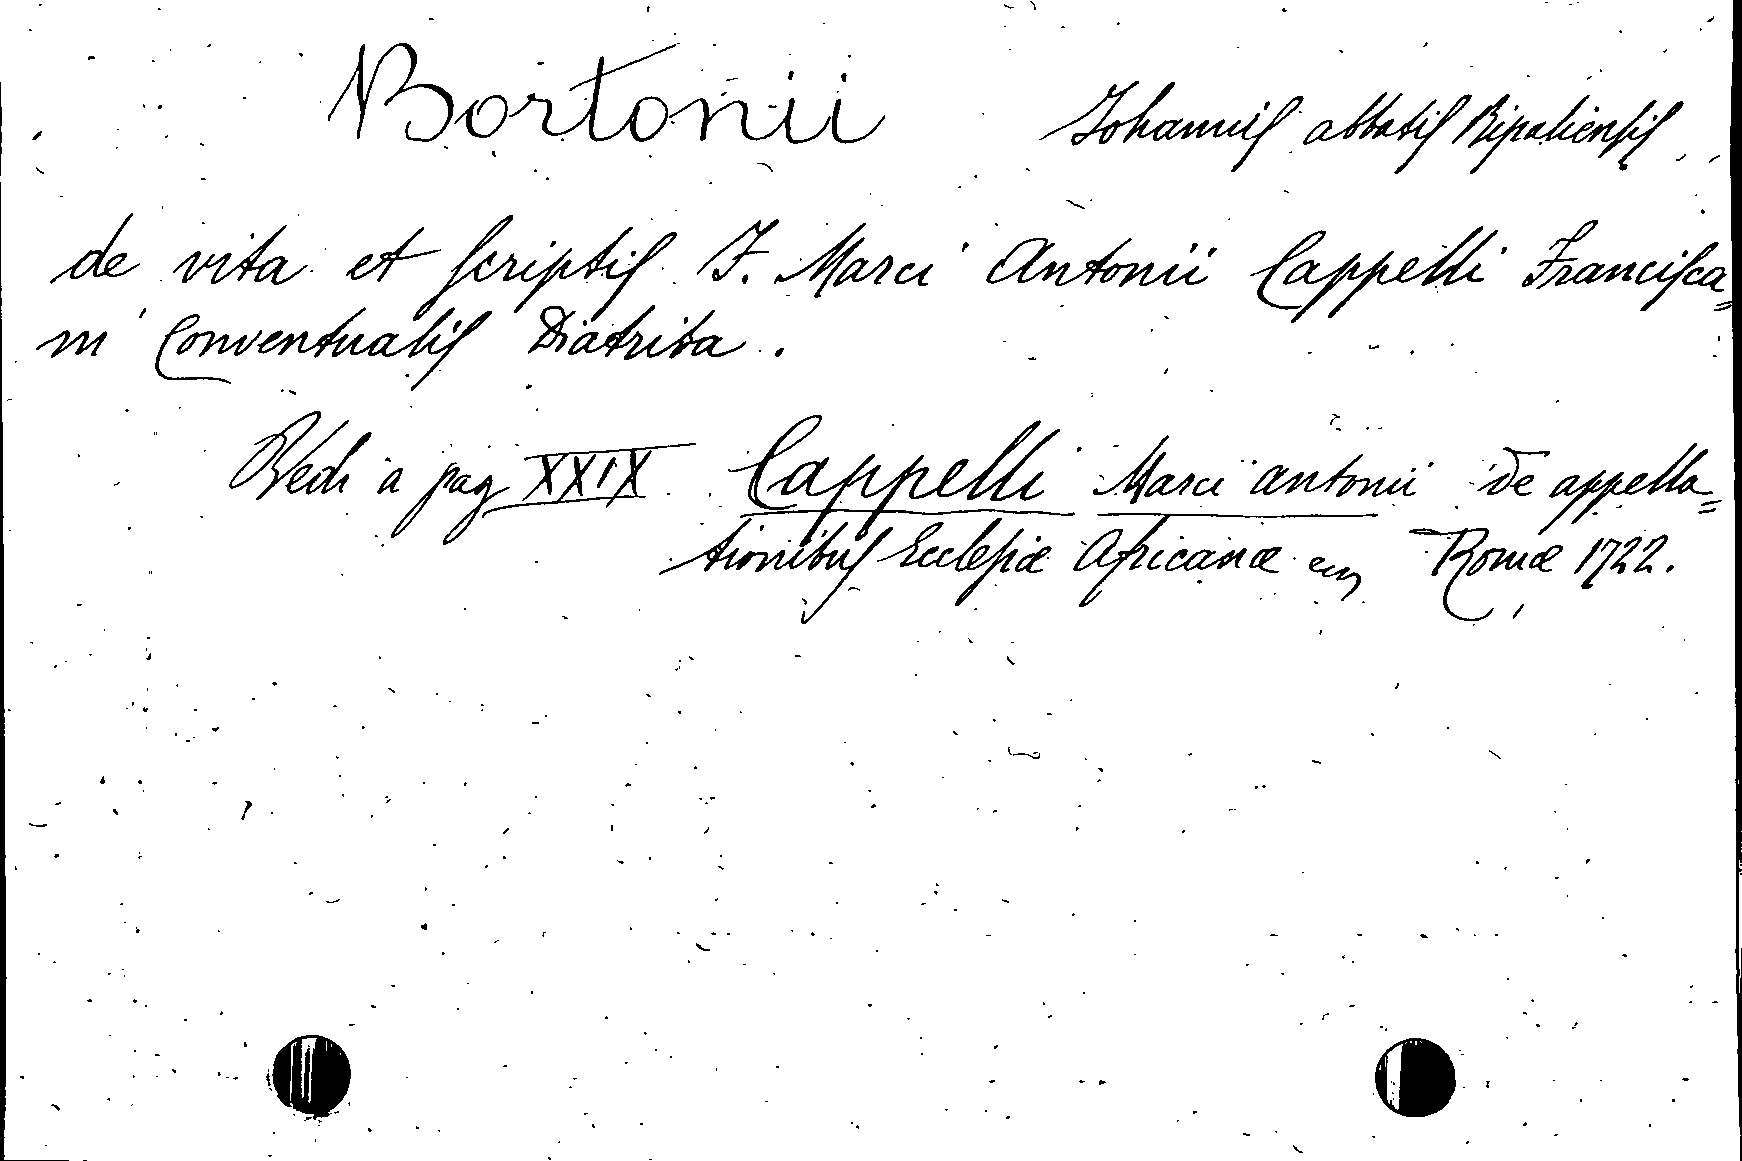 Bortonii Johannis abbatis Ripaliensis
de vita et scriptis F. Marci Antonii Cappelli Francisca=
ni Conventualis Diatriba.
Vedi a pag XXIX Cappelli Marci Antonii De appella=
tionibus Ecclesiæ Africanæ Romæ 1722.